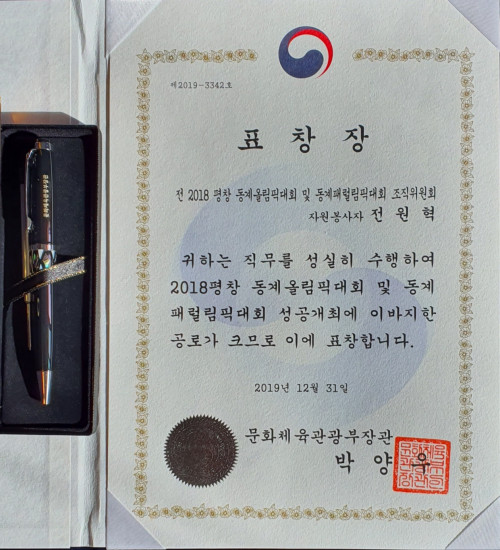 제2019-3342호
표 창 장
전 2018 평창 동계올림픽대회 및 동계패럴림픽대회 조직위원회
자원봉사자 전 원 혁
귀하는 직무를 성실히 수행하여
2018평창 동계올림픽대회 및 동계
패럴림픽대회 성공개최에 이바지한
공로가 크므로 이에 표창합니다.
2019년 12월 31일
문화체육관광부장관
박 양 우